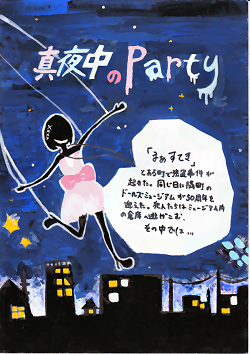 真夜中のParty
「まぁすてき」
とある町で強盗事件が
起きた。同じ日に隣町の
ドールズミュージアムが50周年を
迎えた。犯人たちはミュージアム内
の倉庫へ逃げこむ、
その中では…